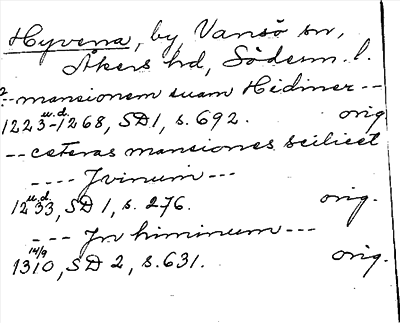 Hyvena, by, Vansö sn,
Åkers hd, Söderm. l.
?-- mansionem suam Hidiner --
u.d.
1223-1268, SD 1, s. 692. orig
-- ceteras mansiones scilicet
---- Jvinum ---
u.d.
1233, SD 1, s. 276. orig.
--- Jn himinum ---
14/9
1310, SD 2, s. 631. orig.